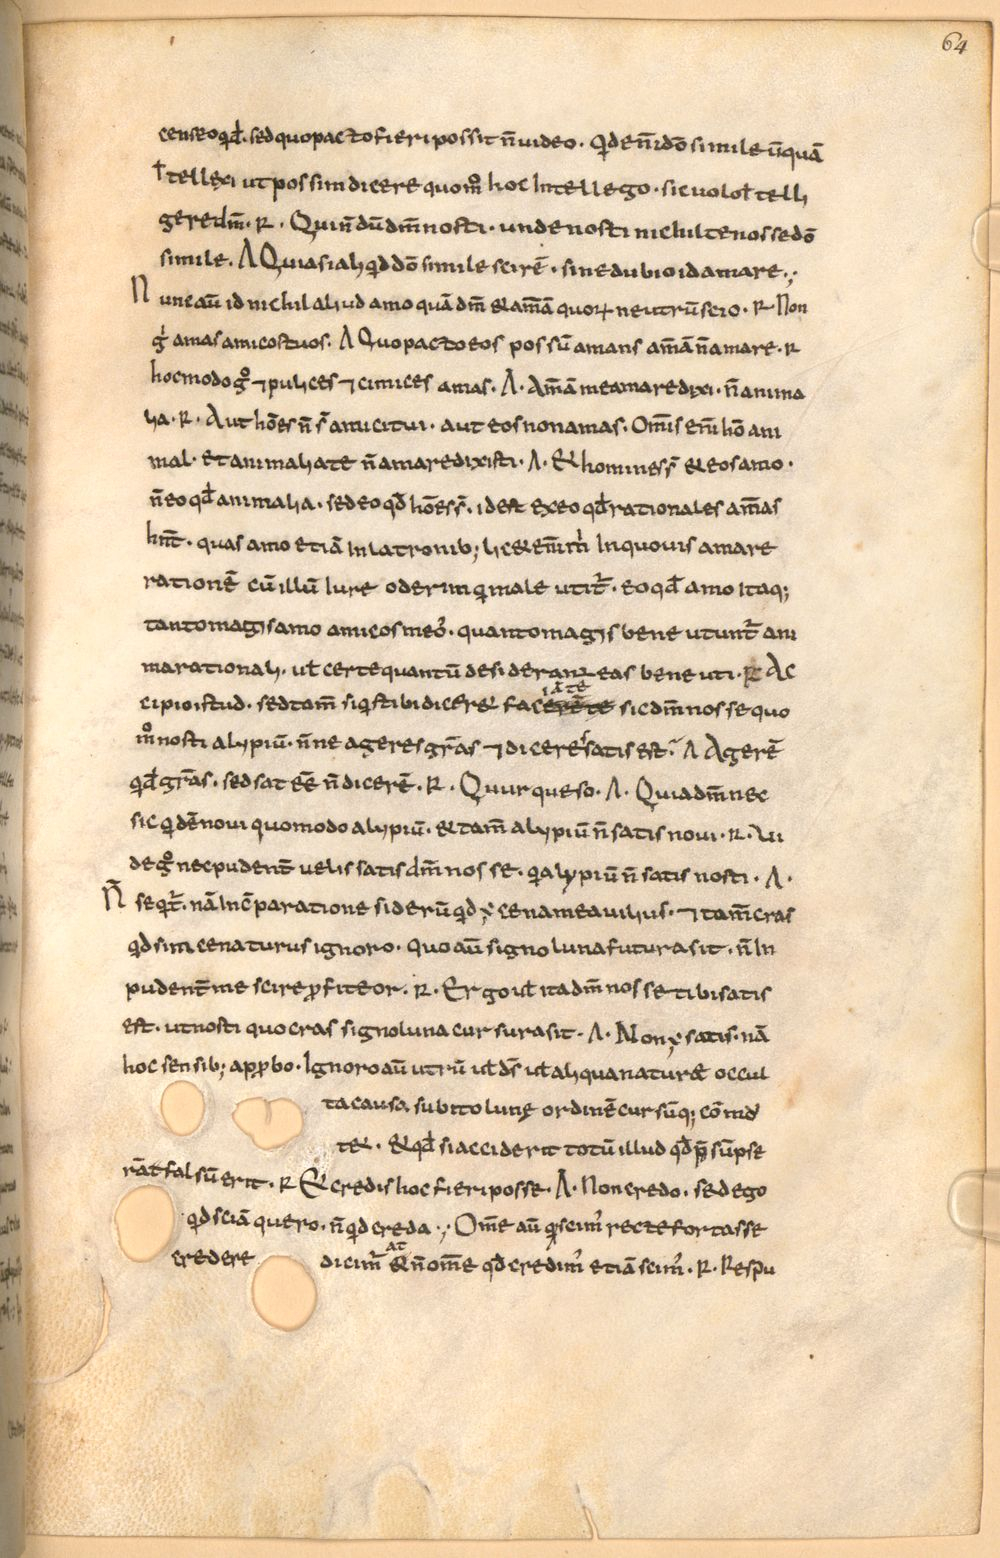 64
censeo qđ. sed quo pacto fieri possit n̄ uideo. Qđ eni͞m dō simile u͞nquā
Itellexi ut possim dicere quom̊ hoc Intellego. sic uolo Itelli
gere dm̄. R. Qui n̄ dū dm̄ nosti. unde nosti nichil te nosse dō
simile. A Quia si aliqđ dō simile scirē. sine dubio id amarē.;
Nunc aū id nichil aliud amo quā dm̄ & am̄ā quoꝝ neutrū scio. R Non
gͥ amas amicos tuos. A Quo pacto eos possū amans am̄ā n̄ amare. R
hoc modo g̊ ⁊ pulices ⁊ cimices amas. A. Am̄ā me amare dixi. n̄ anima
lia. R. Aut hōes n̄ s̄ amici tui. aut eos non amas. Om̄is em̄ hō ani
mal. et animalia te n̄ amare dixisti. A. & homines s̄ & eos amo.
n̄ eo qđ animalia. sed eo qđ hōes s̄. id est ex eo qđ rationales am̄as
hn̄t. quas amo etiā In latronib; lic& em̄ mͥ In quouis amare
rationē cū illū Iure oderim qͥ male utit᷑. eo qđ amo Itaq;
tanto magis amo amicos meoꝰ. quanto magis bene utunt᷑ ani
ma rationali. ul̄ certe quantū desiderant eas bene uti. R Ac
cipio istud. sed tam̄ siqͥs tibi dicer& faciā te sic dm̄ nosse quo
m̊ nosti alypiū. n̄ne ageres grās ⁊ diceres satis est. A Agerē
qđ grās. sed sat eē n̄ dicerē. R. Quur queso. A. Quia dm̄ nec
sic qͥdē noui quomodo alypiū. & tam̄ alypiū n̄ satis noui. R. Vi
de g̊ ne cpudent̄ uelis satis dm̄ nosse. qͥ alypiū n̄ satis nosti. A.
N̄ seqͥt᷑. nā In cōparatione siderū qͥd x̄ cena mea uilius. ⁊ tam̄ cras
qͥd sim cenaturus ignoro. quo aū signo luna futura sit. n̄ In
pudent̄ me scire ꝓfiteor. R. Ergo ul̄ ita dm̄ nosse tibi satis
est. ut nosti quo cras signo luna cursura sit. A. Non x̄ satis. nā
hoc sensib; apꝓbo. Ignoro aū utrū ul̄ ds̄ ul̄ aliqua naturę occul
ta causa. subito lunę ordinē cursūq; cōmu
t&. & qđ si acciderit totū illud qđ p̄sūpse
rāt falsū erit. R & credis hoc fieri posse. A. Non credo. sed ego
qͥd sciā quero. n̄ qͥd credā.; Om̄e aū qđ scimꝰ recte fortasse
credere dicimᷣ at & n̄ om̄e qđ credimꝰ etiā scimꝰ. R. Respu